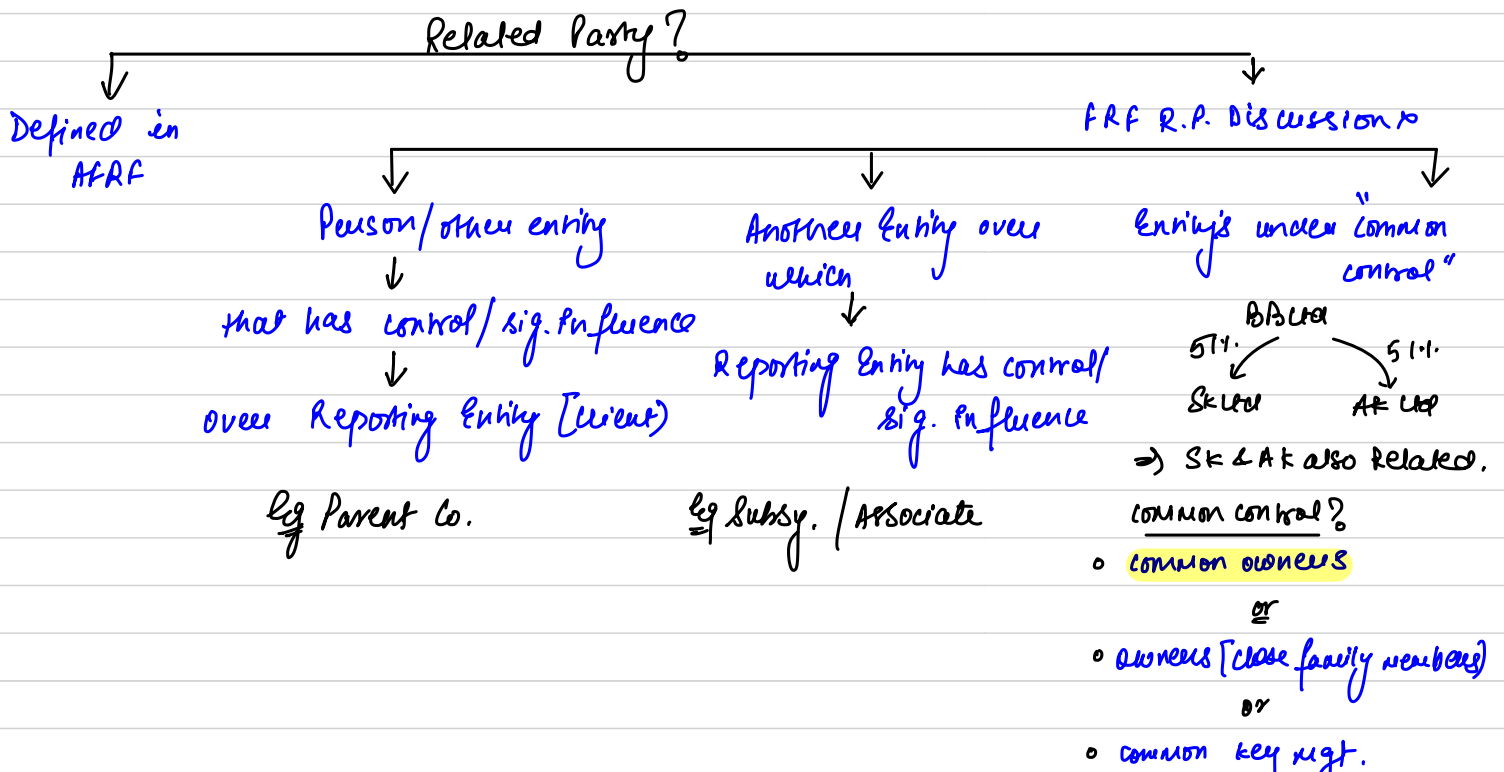 Related Party?
Defined in
AFRF
FRF R.P. Discussion
Person/other entity
that has control/sig. Influence
over Reporting Entity [Client)
Eg Parent Co.
Another Entity over
which
Reporting Entity has control/
sig. influence
Eg Subsy. / Associate
Entity's under "Common
control"
BB Ltd
51%. 51%.
SK Ltd AK Ltd
⇒ SK & AK also Related.
Common control?
• Common owners
or
• owners [close family members)
or
• common key mgt.